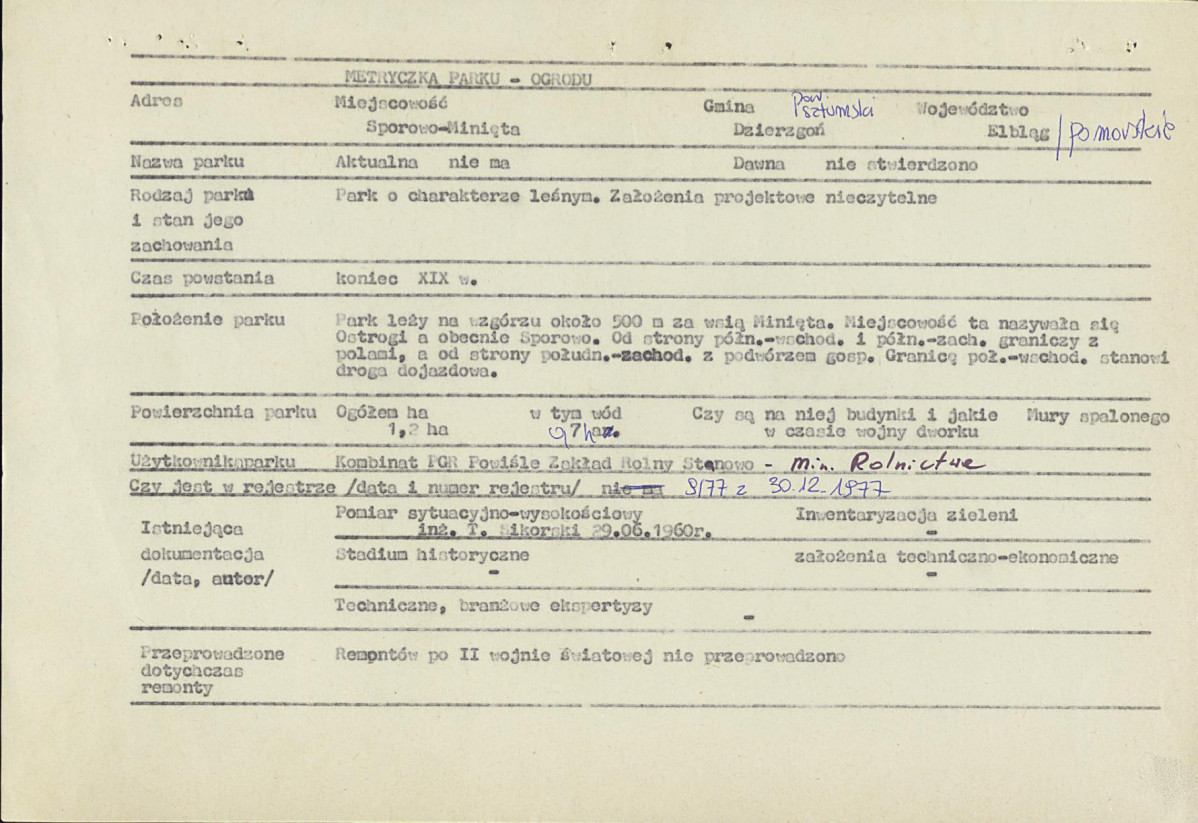 METRYCZKA PARKU - OGRODU
Adres Miejscowość Gmina pow. sztumski Województwo
Sporowo-Minięta Dzierzgoń Elbląg / pomorskie
Nazwa parku Aktualna nie ma Dawna nie stwierdzono
Rodzaj parku Park o charakterze leśnym. Założenia projektowe nieczytelne
i stan jego
zachowania
Czas powstania koniec XIX w.
Położenie parku Park leży na wzgórzu około 500 m za wsią Minięta. Miejscowość ta nazywała się
Ostrogi a obecnie Sporowo. Od strony półn.-wschod. i półn.-zach. graniczy z
polami, a od strony połudn.-zachod. z podwórzem gosp. Granicę poł.-wschod. stanowi
droga dojazdowa.
Powierzchnia parku Ogółem ha w tym wód Czy są na niej budynki i jakie Mury spalonego
1,2 ha w czasie wojny dworku
Użytkownik parku Kombinat PGR Powiśle Zakład Rolny Stanowo - Min. Rolnictwa
Czy jest w rejestrze /data i numer rejestru/ nie ma 8/77 z 30.12.1977
Pomiar sytuacyjno-wysokościowy Inwentaryzacja zieleni
Istniejąca inż. T. Sikorski 29.06.1960r. -
dokumentacja Stadium historyczne założenia techniczno-ekonomiczne
/data, autor/ - -
Techniczne, branżowe ekspertyzy
-
Przeprowadzone Remontów po II wojnie światowej nie przeprowadzono
dotychczas
remonty